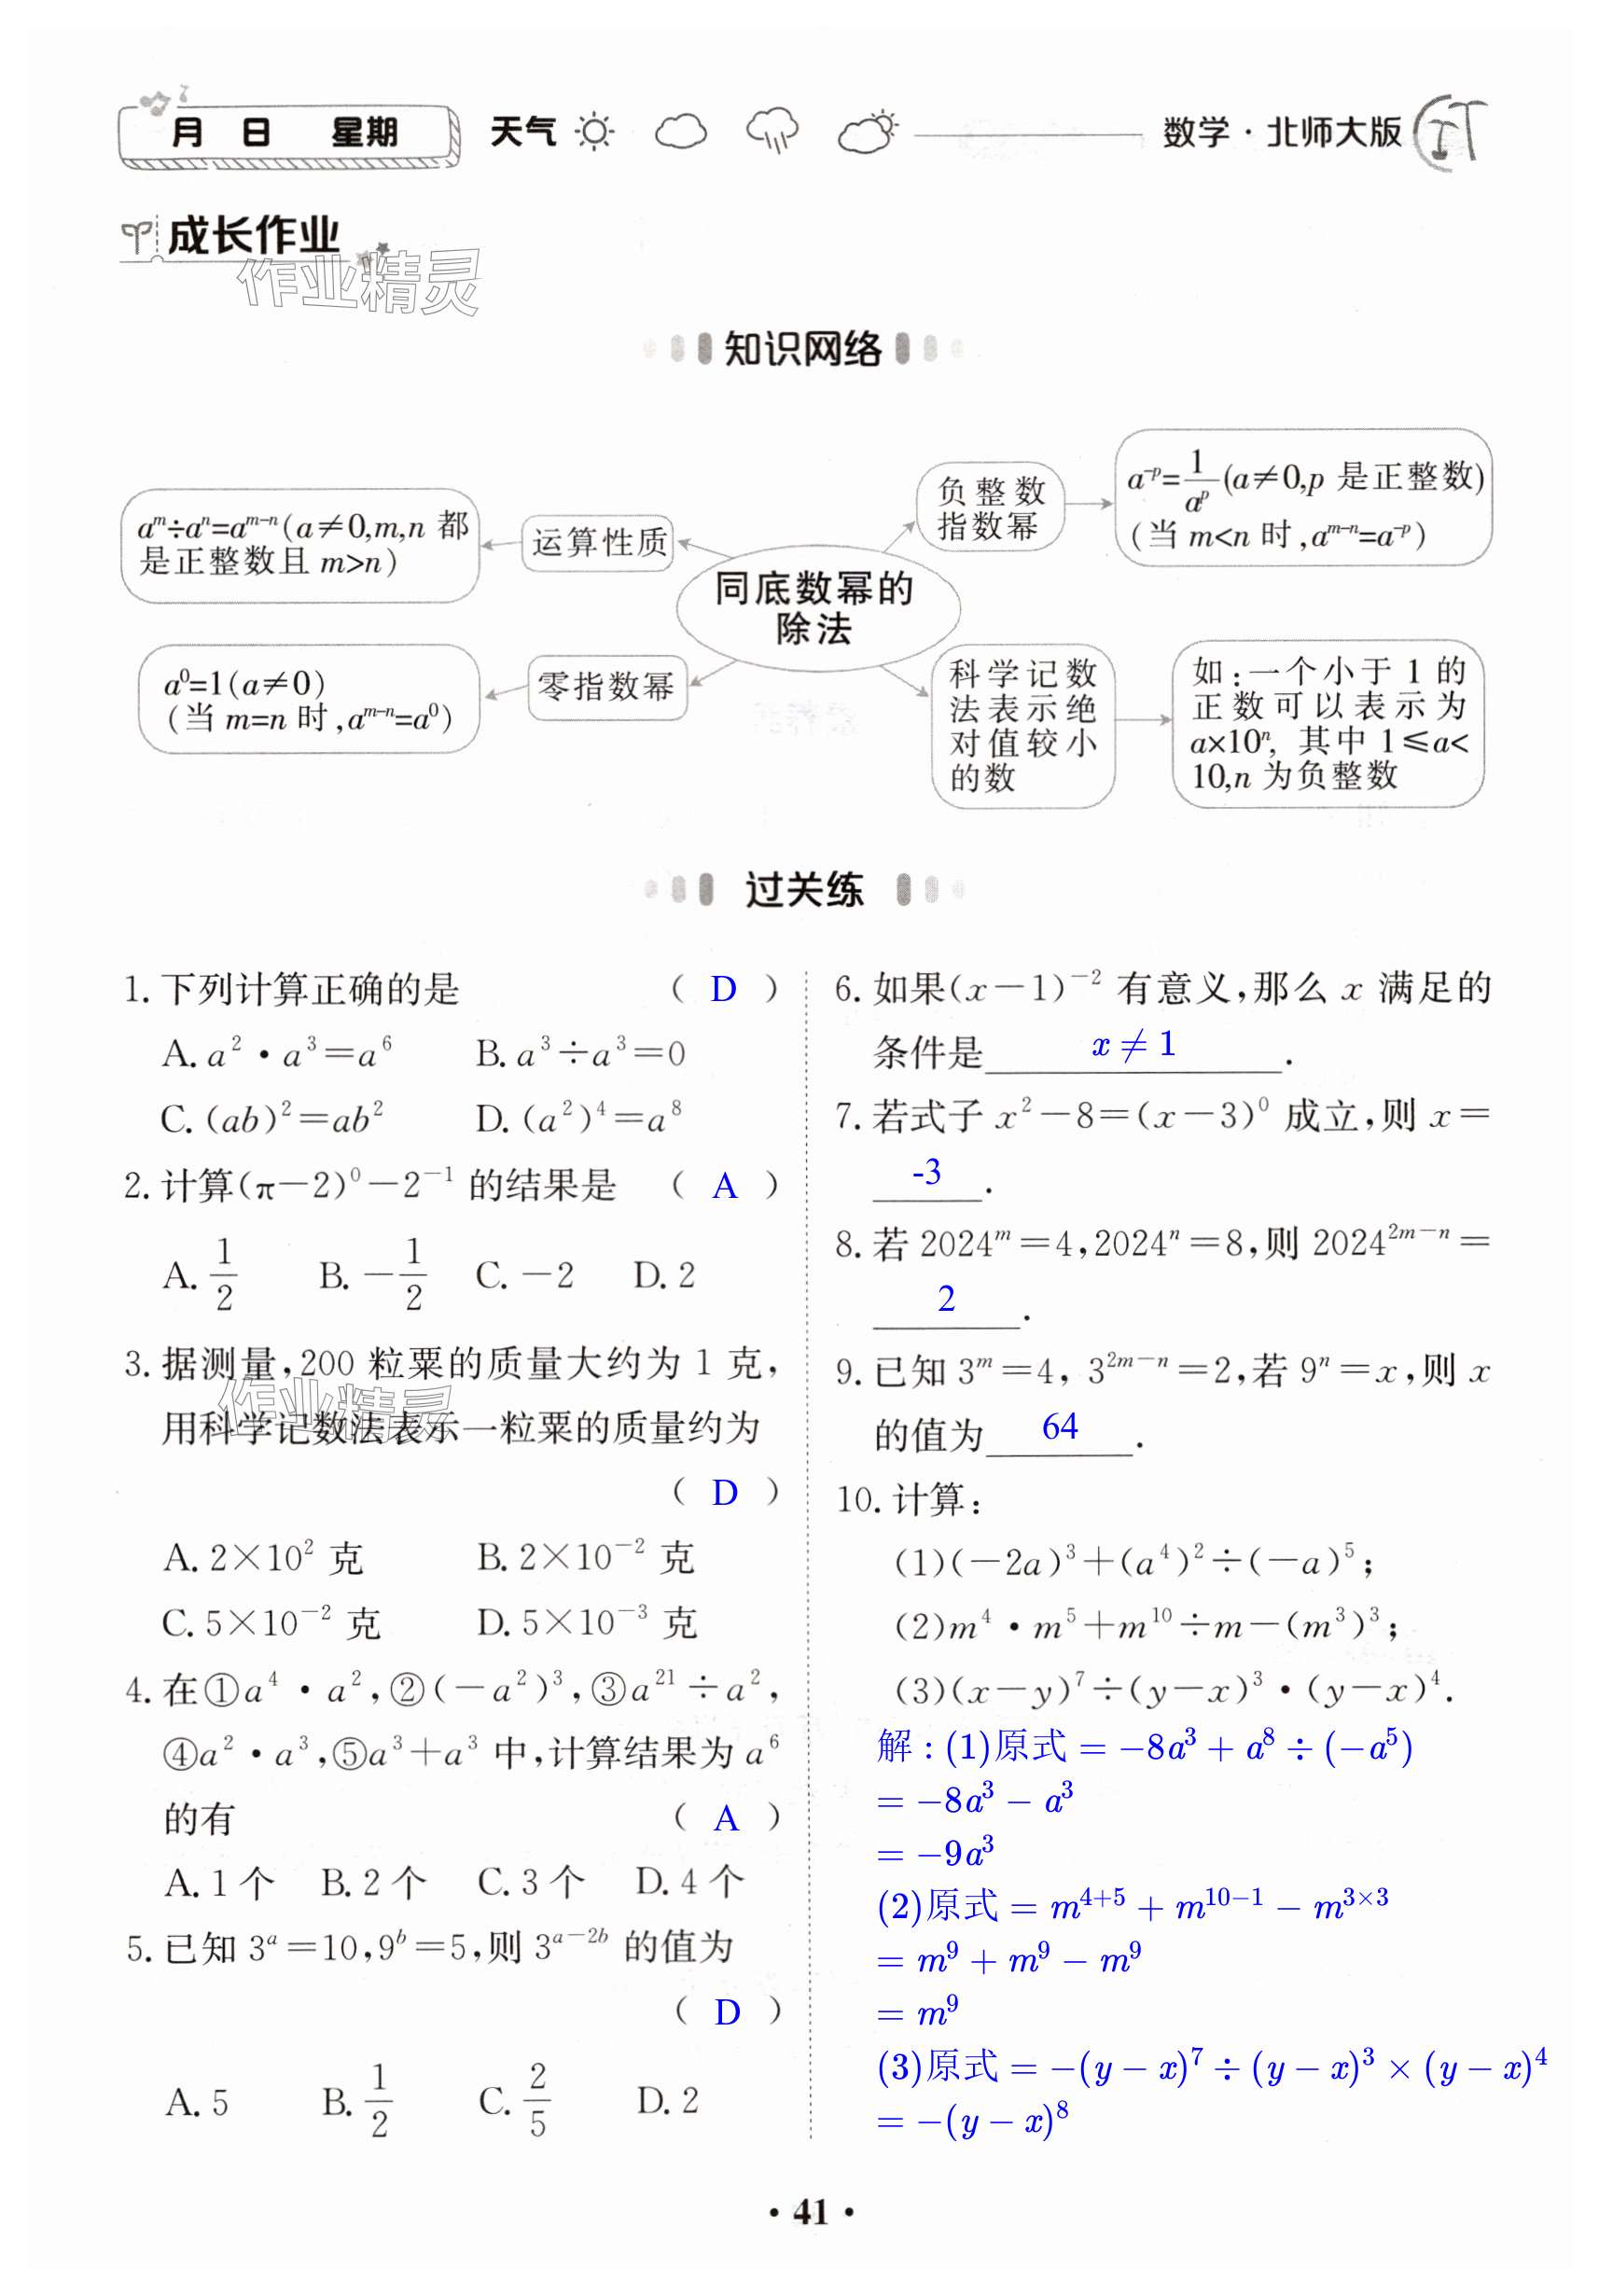 月 日 星期 天气 数学·北师大版
成长作业
作业精灵
知识网络
a^m÷a^n=a^{m-n}(a≠0,m,n 都
是正整数且 m>n)
运算性质
同底数幂的
除法
负整数
指数幂
a^{-p}=\frac{1}{a^p}(a≠0,p 是正整数)
(当 m<n 时,a^{m-n}=a^{-p})
a^0=1(a≠0)
(当 m=n 时,a^{m-n}=a^0)
零指数幂
科学记数
法表示绝
对值较小
的数
如:一个小于 1 的
正数可以表示为
a×10^n, 其中 1≤a<
10,n 为负整数
过关练
1. 下列计算正确的是 ( D )
A. a^2·a^3=a^6 B. a^3÷a^3=0
C. (ab)^2=ab^2 D. (a^2)^4=a^8
2. 计算(π-2)^0-2^{-1} 的结果是 ( A )
A. \frac{1}{2} B. -\frac{1}{2} C. -2 D. 2
3. 据测量,200 粒粟的质量大约为 1 克,
作业精灵
用科学记数法表示一粒粟的质量约为
( D )
A. 2×10^2 克 B. 2×10^{-2} 克
C. 5×10^{-2} 克 D. 5×10^{-3} 克
4. 在①a^4·a^2,②(-a^2)^3,③a^{21}÷a^2,
④a^2·a^3,⑤a^3+a^3 中,计算结果为 a^6
的有 ( A )
A. 1 个 B. 2 个 C. 3 个 D. 4 个
5. 已知 3^a=10,9^b=5,则 3^{a-2b} 的值为
( D )
A. 5 B. \frac{1}{2} C. \frac{2}{5} D. 2
6. 如果(x-1)^{-2} 有意义,那么 x 满足的
条件是 x ≠ 1 .
7. 若式子 x^2-8=(x-3)^0 成立,则 x=
-3 .
8. 若 2024^m=4,2024^n=8,则 2024^{2m-n}=
2 .
9. 已知 3^m=4, 3^{2m-n}=2,若 9^n=x,则 x
的值为 64 .
10. 计算:
(1)(-2a)^3+(a^4)^2÷(-a)^5;
(2)m^4·m^5+m^{10}÷m-(m^3)^3;
(3)(x-y)^7÷(y-x)^3·(y-x)^4.
解:(1)原式=-8a^3+a^8÷(-a^5)
=-8a^3-a^3
=-9a^3
(2)原式=m^{4+5}+m^{10-1}-m^{3×3}
=m^9+m^9-m^9
=m^9
(3)原式=-(y-x)^7÷(y-x)^3×(y-x)^4
=-(y-x)^8
·41·